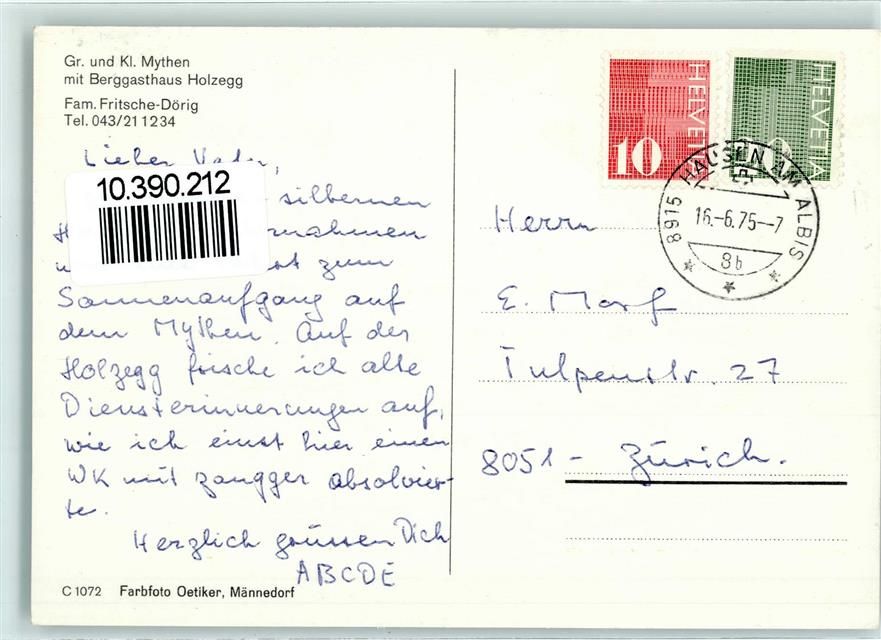 Gr. und Kl. Mythen
mit Berggasthaus Holzegg
Fam. Fritsche-Dörig
Tel. 043/21 1234
Lieber Vater,
10.390.212
silbernen
Sonnenaufgang auf
zum
dem Mythen. Auf der
Holzegg frische ich alte
Diensterinnerungen auf,
wie ich einst hier einen
WK mit Zaugger absolvier-
te.
Herzlich grüssen Dich
ABCDE
C 1072 Farbfoto Oetiker, Männedorf
HELVETIA
10
HELVETIA
8915 HAUSEN AM ALBIS
16.-6.75--7
8b
Herrn
E. Morf
Tulpenstr. 27
8051 - Zürich.